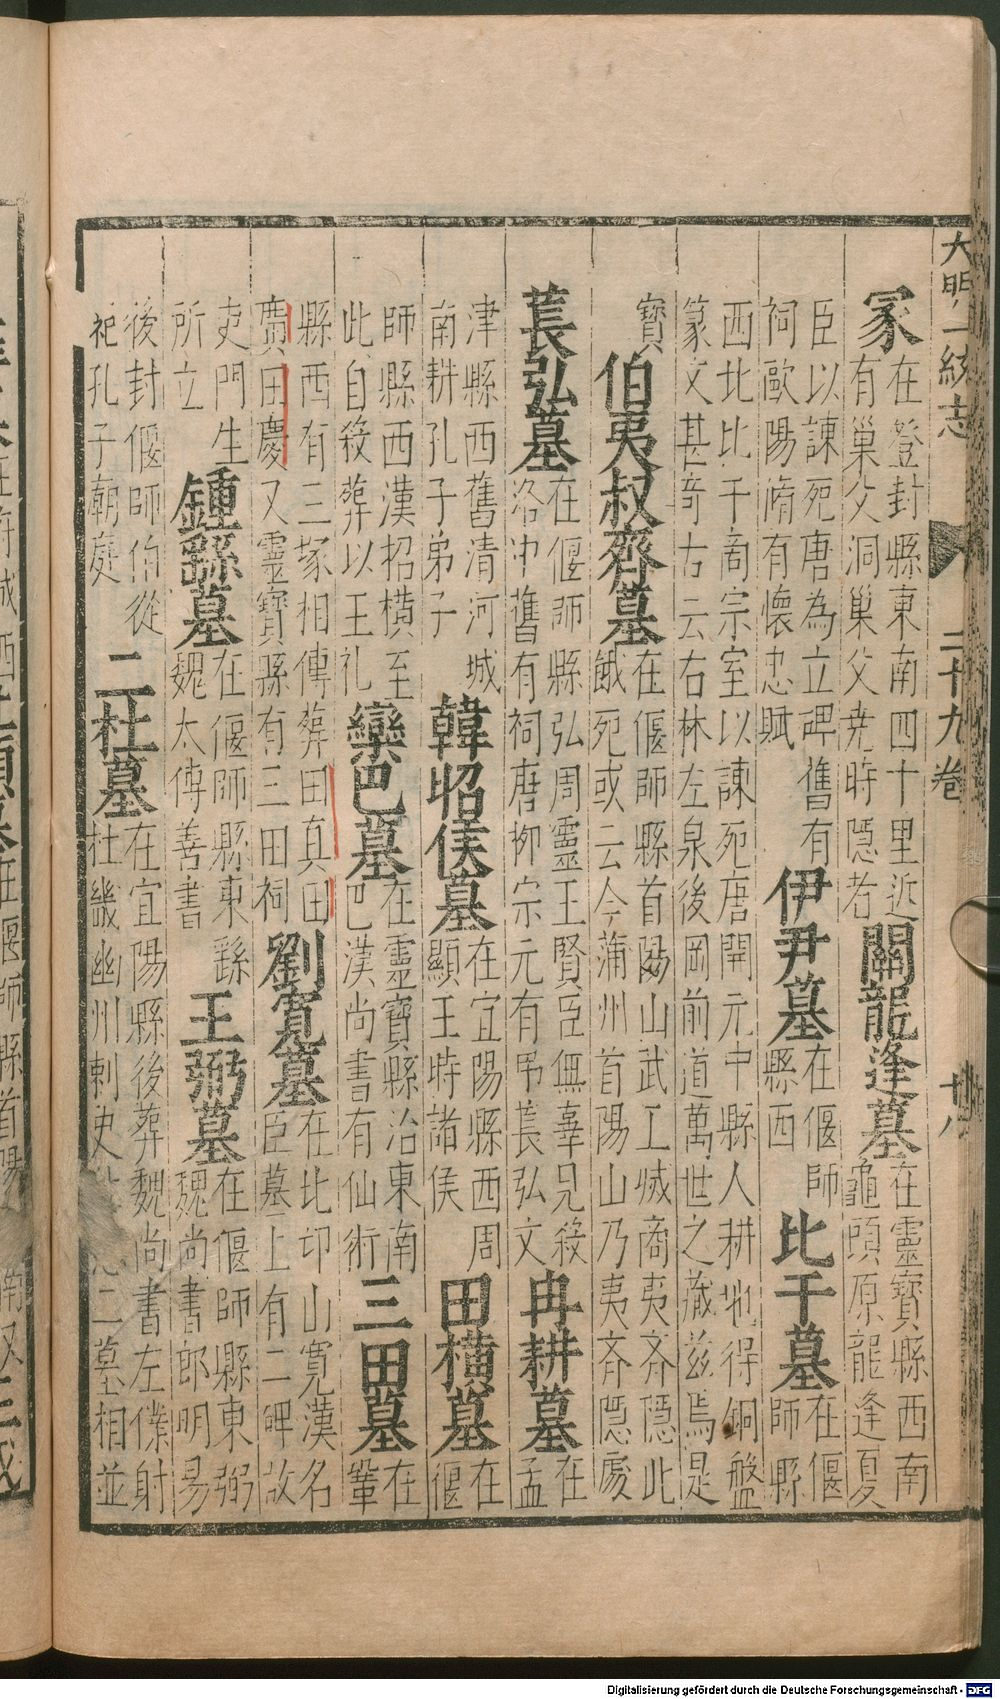 大明一統志 二十九卷 廿八
冢
在登封縣東南四十里近
有巢父洞巢父堯時隱者
關龍逢墓
在靈寶縣西南
龜頭原龍逢夏
臣以諫死唐為立碑舊有
祠歐陽脩有懷忠賦
伊尹墓
在偃師
縣西
比干墓
在偃
師縣
西北比干商宗室以諫死唐開元中縣人耕地得銅盤
篆文甚奇古云右林左泉後岡前道萬世之藏茲焉是
寶
伯夷叔齊墓
在偃師縣首陽山武王滅商夷齊隱此
餓死或云今蒲州首陽山乃夷齊隱處
萇弘墓
在偃師縣弘周靈王賢臣無辜見殺
洛中舊有祠唐柳宗元有弔萇弘文
冉耕墓
在
孟
津縣西舊清河城
南耕孔子弟子
韓昭侯墓
在宜陽縣西周
顯王時諸侯
田橫墓
在
偃
師縣西漢招橫至
此自殺葬以王礼
欒巴墓
在靈寶縣治東南
巴漢尚書有仙術
三田墓
在
鞏
縣西有三冢相傳葬田真田
廣田慶又靈寶縣有三田祠
劉寬墓
在北邙山寬漢名
臣墓上有二碑故
吏門生
所立
鍾繇墓
在偃師縣東繇
魏太傅善書
王弼墓
在偃師縣東弼
魏尚書郎明易
後封偃師伯從
祀孔子廟庭
二杜墓
在宜陽縣後葬魏尚書左僕射
杜畿幽州刺史 二墓相並
Digitalisierung gefördert durch die Deutsche Forschungsgemeinschaft - DFG